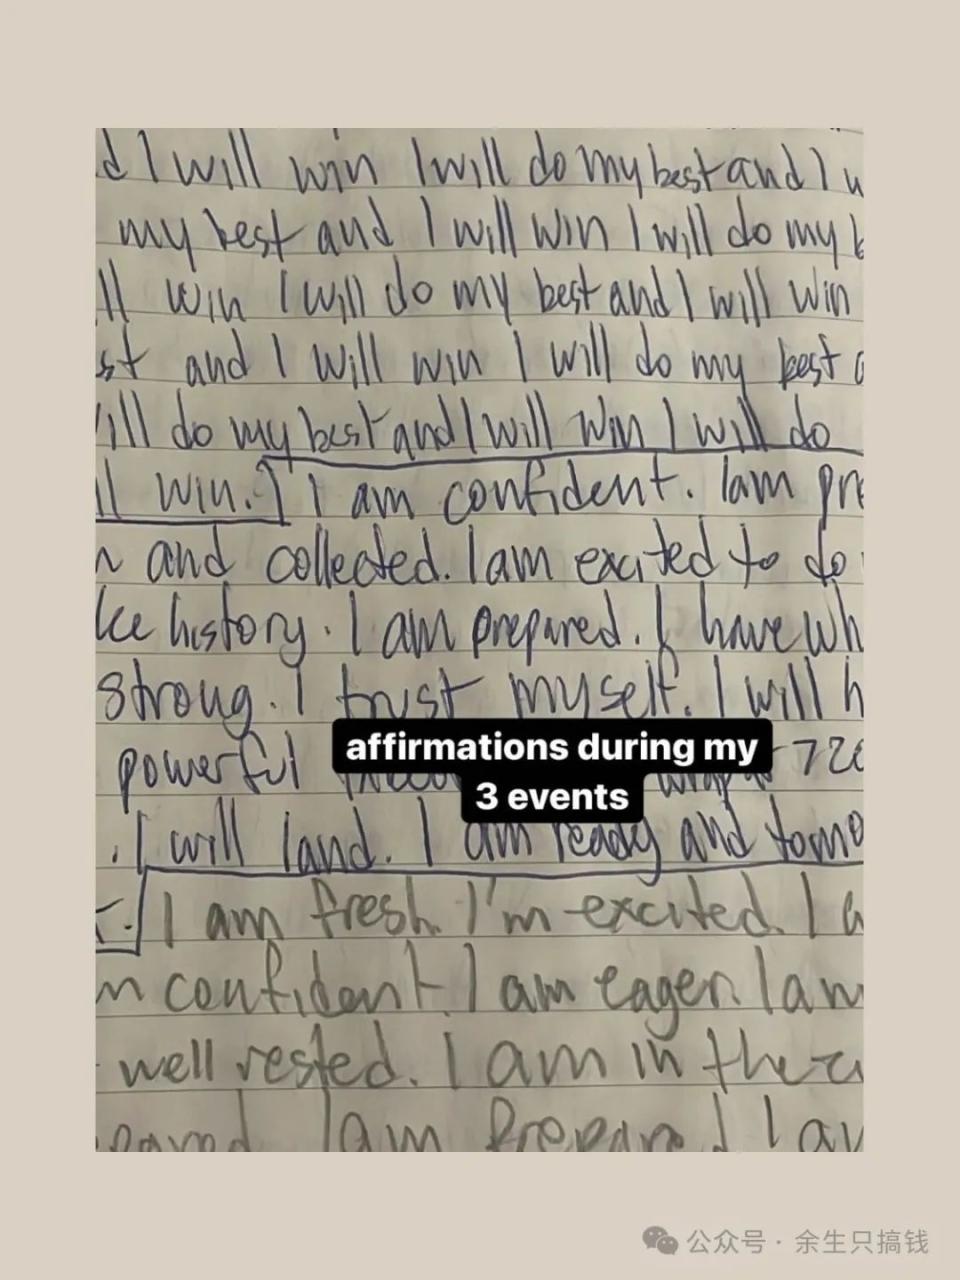 d I will win I will do my best and I w
my best and I will win I will do my b
ll win I will do my best and I will win
st and I will win I will do my best a
will do my best and I will win I will do
ll win. I am confident. I am pre
n and collected. I am excited to do
ke history. I am prepared. I have wh
strong. I trust myself. I will h
affirmations during my
powerful 720
3 events
. I will land. I am ready and tomo
I am fresh. I'm excited. I a
m confident. I am eager. I am
well rested. I am in the
pared. I am prepared I am
公众号 · 余生只搞钱